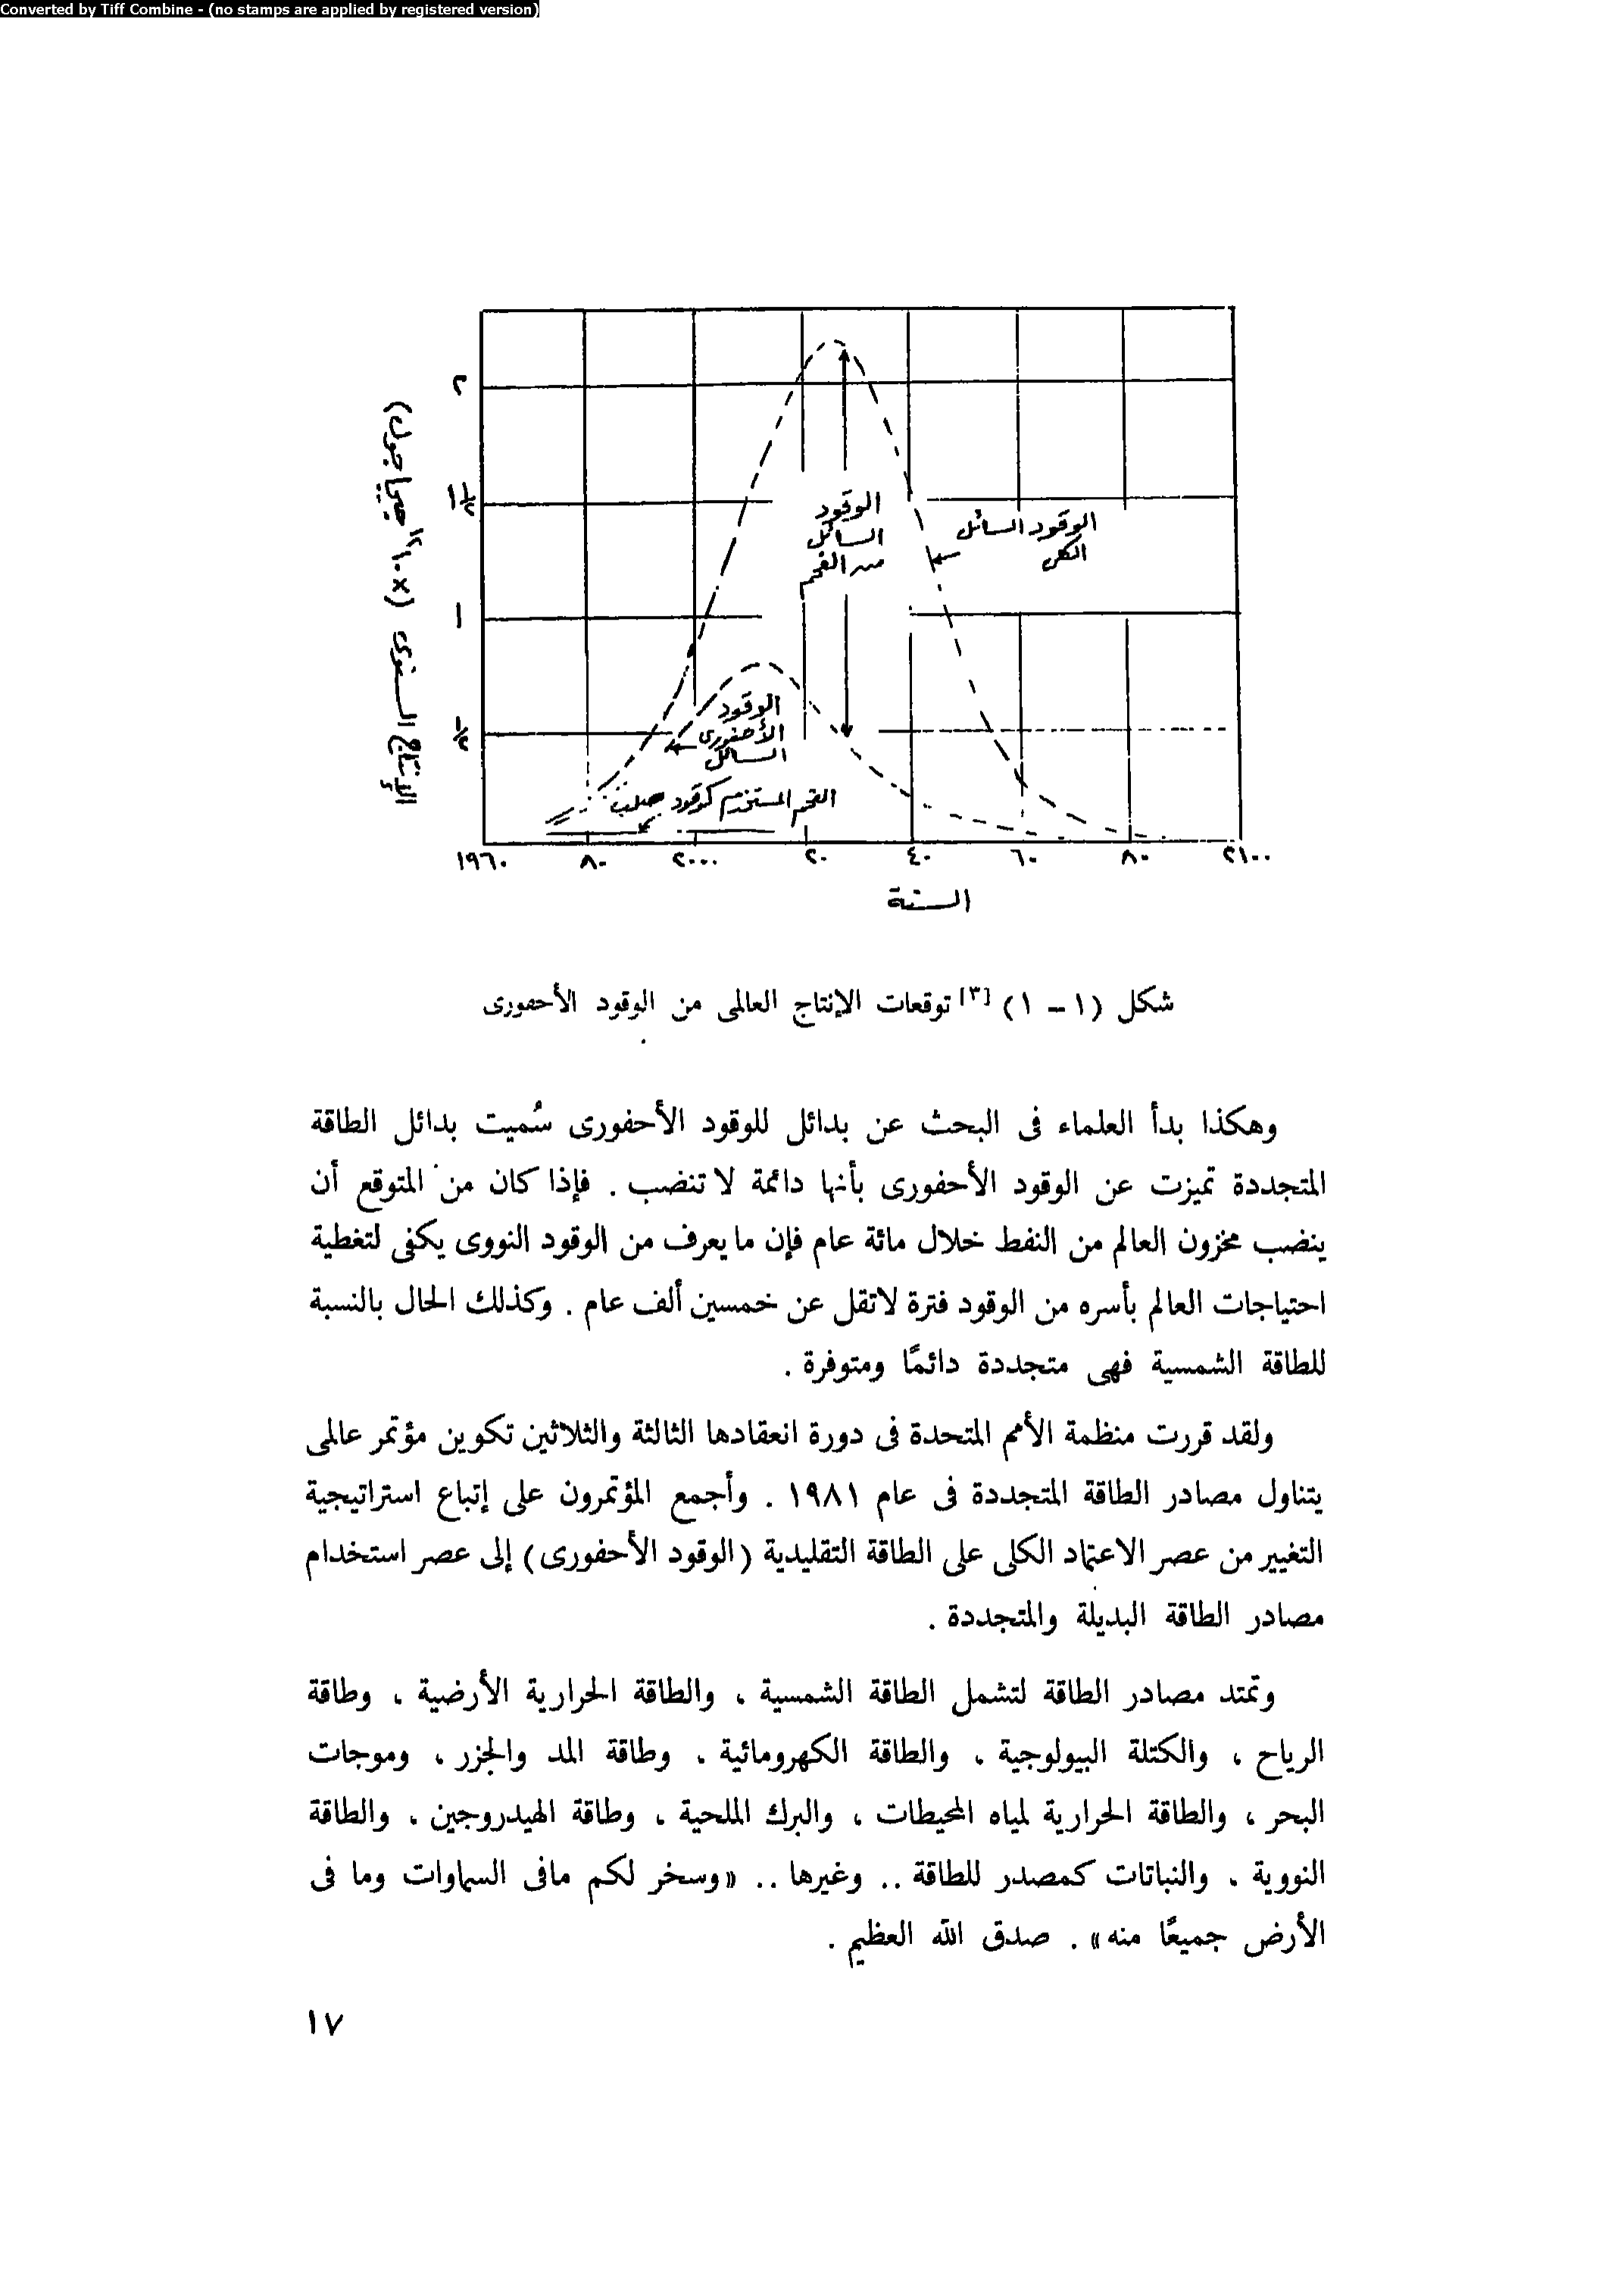 Converted by Tiff Combine - (no stamps are applied by registered version)
٢
١ ١/٢
١
١/٢
الإنتاج السنوى (×١٠١٢ جيجا جول)
الوقود
السائل
من الفحم
الوقود السائل
الكلى
الوقود
الأحفورى
السائل
الفحم المستخدم كوقود صلب
١٩٦٠ ٨٠ ٢٠٠٠ ٢٠ ٤٠ ٦٠ ٨٠ ٢١٠٠
السنة
شكل (١ – ١) [٣] توقعات الإنتاج العالمى من الوقود الأحفورى
وهكذا بدأ العلماء فى البحث عن بدائل للوقود الأحفورى سُميت بدائل الطاقة
المتجددة تميزت عن الوقود الأحفورى بأنها دائمة لا تنضب . فإذا كان من المتوقع أن
ينضب مخزون العالم من النفط خلال مائة عام فإن ما يعرف من الوقود النووى يكفى لتغطية
احتياجات العالم بأسره من الوقود فترة لاتقل عن خمسين ألف عام . وكذلك الحال بالنسبة
للطاقة الشمسية فهى متجددة دائمًا ومتوفرة .
ولقد قررت منظمة الأمم المتحدة فى دورة انعقادها الثالثة والثلاثين تكوين مؤتمر عالمى
يتناول مصادر الطاقة المتجددة فى عام ١٩٨١ . وأجمع المؤتمرون على إتباع استراتيجية
التغيير من عصر الاعتماد الكلى على الطاقة التقليدية (الوقود الأحفورى) إلى عصر استخدام
مصادر الطاقة البديلة والمتجددة .
وتمتد مصادر الطاقة لتشمل الطاقة الشمسية ، والطاقة الحرارية الأرضية ، وطاقة
الرياح ، والكتلة البيولوجية ، والطاقة الكهرومائية ، وطاقة المد والجزر ، وموجات
البحر ، والطاقة الحرارية لمياه المحيطات ، والبرك الملحية ، وطاقة الهيدروجين ، والطاقة
النووية ، والنباتات كمصدر للطاقة .. وغيرها .. «وسخر لكم مافى السماوات وما فى
الأرض جميعًا منه» . صدق الله العظيم .
١٧